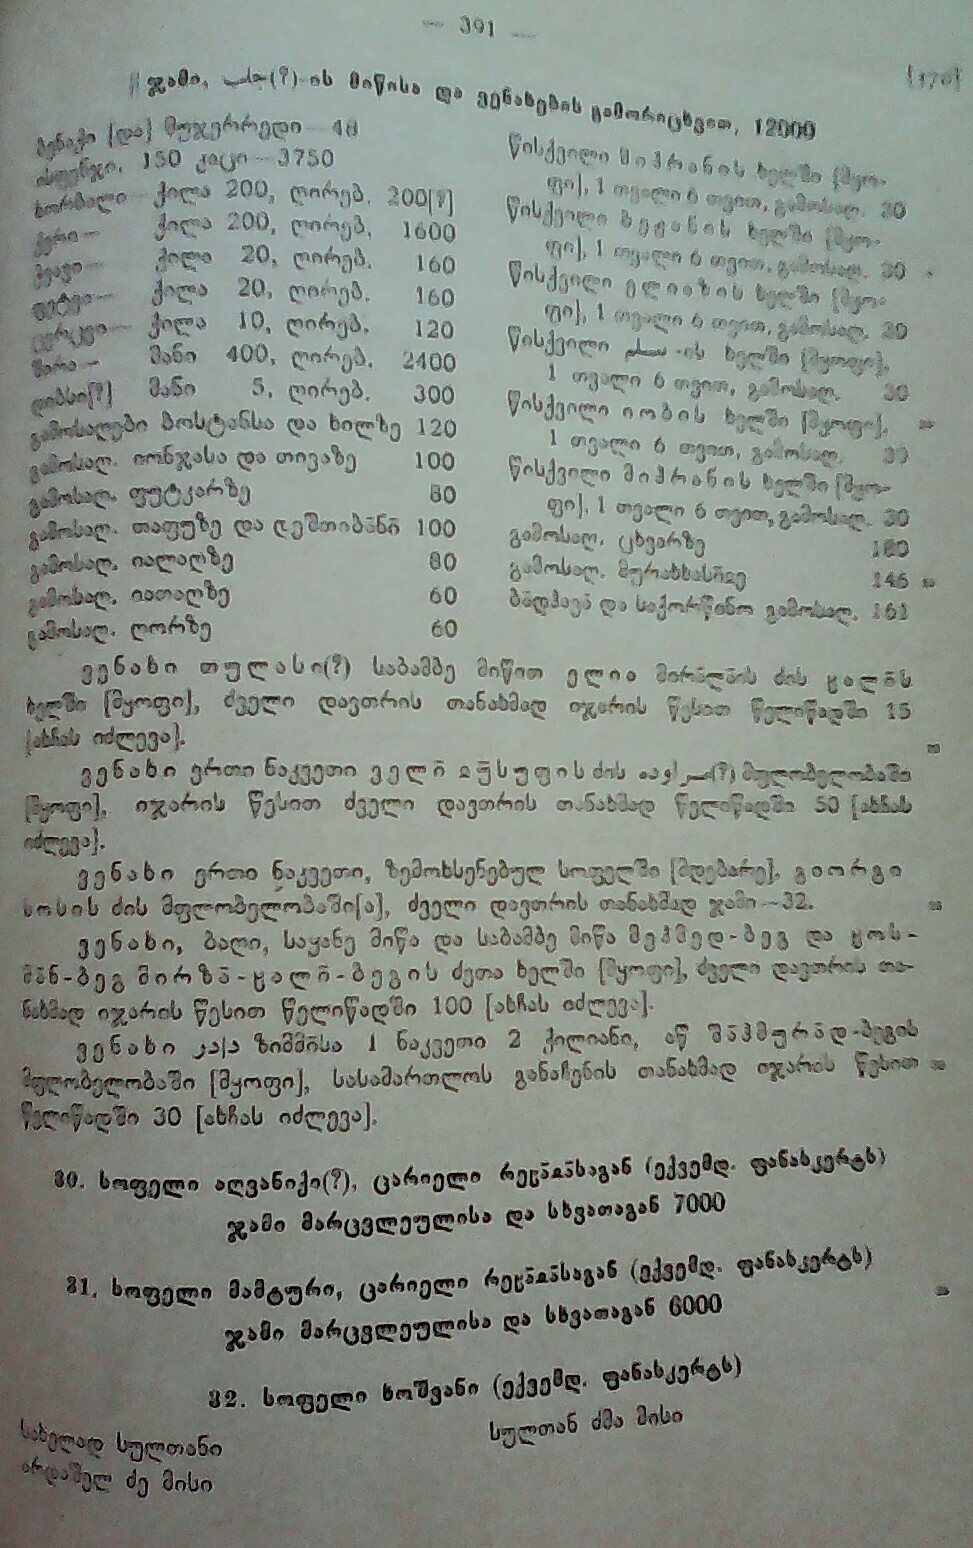 — 391 —
[170]
ჯამი, (?)-ის მიწისა და ვენახების გამორიცხვით, 12000
ბენაქი [და] მუჯერრედი—48
ისფენჯი, 150 კაცი—3750
ხორბალი— ქილა 200, ღირებ. 200[?]
ქერი— ქილა 200, ღირებ. 1600
ჭვავი— ქილა 20, ღირებ. 160
ფეტვი— ქილა 20, ღირებ. 160
ცერცვი— ქილა 10, ღირებ. 120
შირა— მანი 400, ღირებ. 2400
ღიბსი[?] მანი 5, ღირებ. 300
გამოსაღები ბოსტანსა და ხილზე 120
გამოსაღ. იონჯასა და თივაზე 100
გამოსაღ. ფუტკარზე 80
გამოსაღ. თაფუზე და დეშთიბანი 100
გამოსაღ. იალაღზე 80
გამოსაღ. იათაღზე 60
გამოსაღ. ღორზე 60
წისქვილი მიჰრანის ხელში [მყო-
ფი], 1 თვალი 6 თვით, გამოსაღ. 30
წისქვილი ხელში [მყო-
ფი], 1 თვალი 6 თვით, გამოსაღ. 30
წისქვილი ელიაზის ხელში [მყო-
ფი], 1 თვალი 6 თვით, გამოსაღ. 30
წისქვილი -ის ხელში [მყოფი],
1 თვალი 6 თვით, გამოსაღ. 30
წისქვილი იობის ხელში [მყოფი],
1 თვალი 6 თვით, გამოსაღ. 30
წისქვილი მიჰრანის ხელში [მყო-
ფი], 1 თვალი 6 თვით, გამოსაღ. 30
გამოსაღ. ცხვარზე 180
გამოსაღ. 146
ბადჰავა და საქორწინო გამოსაღ. 161
ვენახი თულასი(?) საბამბე მიწით ელია ძის
ხელში [მყოფი], ძველი დავთრის თანახმად იჯარის წესით წელიწადში 15
[ახჩას იძლევა].
ვენახი ერთი ნაკვეთი ველი ჲუსუფის ძის (?) მფლობელობაში
[მყოფი], იჯარის წესით ძველი დავთრის თანახმად წელიწადში 50 [ახჩას
იძლევა].
ვენახი ერთი ნაკვეთი, ზემოხსენებულ სოფელში [მდებარე], გიორგი
სოსის ძის მფლობელობაში[ა], ძველი დავთრის თანახმად ჯამი—32.
ვენახი, ბაღი, საყანე მიწა და საბამბე მიწა მეჰმედ-ბეგ და ჺოს-
მა̄ნ-ბეგ მირზა̄-ჺალი̄-ბეგის ძეთა ხელში [მყოფი], ძველი დავთრის თა-
ნახმად იჯარის წესით წელიწადში 100 [ახჩას იძლევა].
ვენახი კაჲა ზიმმისა 1 ნაკვეთი 2 ქილიანი, აწ შა̄ჰმურა̄დ-ბეგის
მფლობელობაში [მყოფი], სასამართლოს განაჩენის თანახმად იჯარის წესით
წელიწადში 30 [ახჩას იძლევა].
30. სოფელი აღვანიქი(?), ცარიელი რეჺა̄ჲა̄საგან (ექვემდ. ფანასკერტს)
ჯამი მარცვლეულისა და სხვათაგან 7000
31. სოფელი მამტური, ცარიელი რეჺა̄ჲა̄საგან (ექვემდ. ფანასკერტს)
ჯამი მარცვლეულისა და სხვათაგან 6000
32. სოფელი ხოშვანი (ექვემდ. ფანასკერტს)
სახელად სულთანი
არდაშელ ძე მისი
სულთან ძმა მისი